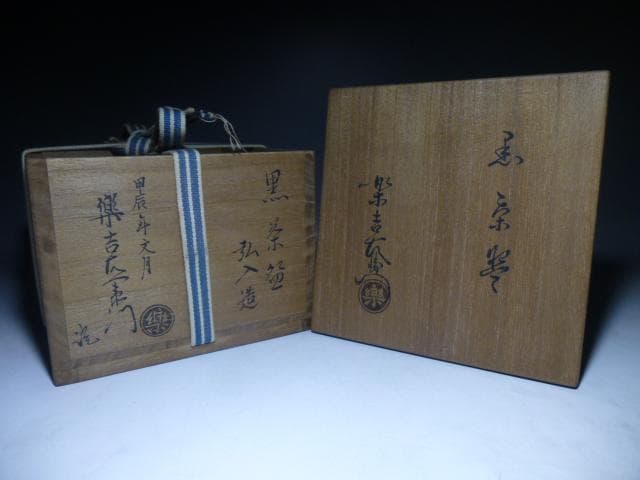 黒茶盌
弘入造
甲辰年文月
樂吉左衞門
樂
黒茶碗
樂吉左衞門
樂